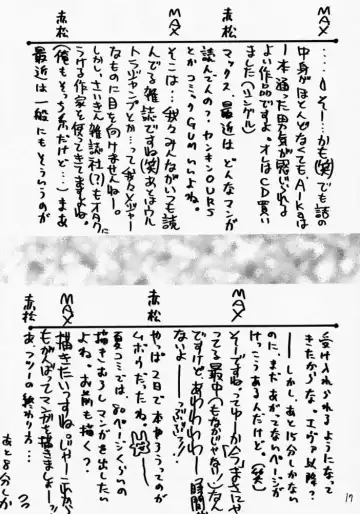 MAX
‥‥そー‥かも(笑)でも話の
中身がほとんどなくても、AIKaは
一本通った男気が感じられ
よい作品ですよ。オレはCD買い
ました(シングル)
赤松
マックス、最近は どんなマンガ
読んでんの?ヤンキンOURS
とか コミックGUMいいよね。
MAX
そこは‥‥我々みんながいつも読
んでる雑誌ですね(笑)あとはウル
トラジャンプとか‥‥って我々メジャー
なものに目を向けませんねー。
赤松
しかし、さいきん雑誌社(?)もオタクに
うける作家を使ってきてますよね。
(俺もそっち系だけど…)まあ
最近は一般にもそういうのが
受け入れられるようになって
きたからな。エヴァ以降?
──しかし、あと15分しかない
のに、まだあがってないページが
けっこうあるんだけど。(笑)
MAX
そーですね。ってゆーか今まさにや
ってる最中(もなかじゃない)なん
ですけど。あわわわわー「時間
ないよ──っぷぃっ!」
赤松
やっぱ2日で本作るってのが
ムボウだったね。
夏コミでは、80ページくらいの
描きおろしマンガを出したい
よね。お前も描く?
MAX
描きたいっすね。じゃーこれから
もがんばってマンガを描きましょー!
赤松
あ、フツーの終わり方…
あと8分しか
17